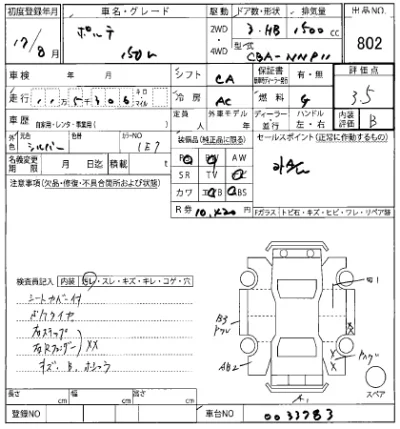 初度登録年月 車名・グレード 駆動 ドア数・形状 排気量 出品NO
17/8月 ポルテ 2WD・4WD 3.HB 1500cc 802
150r 型式 CBA-NNP11
車検 年 月 シフト CA 保証書 有・無 評価点
走行 115306 キロ・マイル 冷房 AC 燃料 G 3.5
車歴 自家用・レンタ・事業用 定員 人 外車モデル 年 ディーラー 並行 ハンドル 左・右 内装評価 B
外色 元色 シルバー 色替 カラーNO 1E7 装備品(純正品に限る) セールスポイント(正常に作動するもの)
名義変更期限 月 日迄 積載 t PS PW AW
SR TV
注意事項(欠品・修復・不具合箇所および状態) カワ エアB ABS
R券 10,420
Fガラス・トビ石・キズ・ヒビ・ワレ・リペア跡
検査員記入 内装 ・スレ・キズ・キレ・コゲ・穴
シートカバー付
右ステップ
右Rフェンダー XX
キズ
B3
AB2
A1
スペア
長さ cm 幅 cm 高さ cm
登録NO 車台NO 0033783